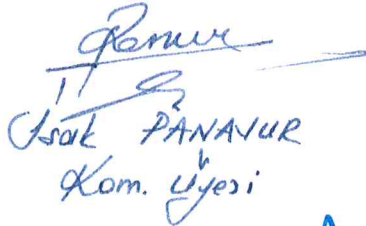 İsak PANAVUR
Kom. Üyesi